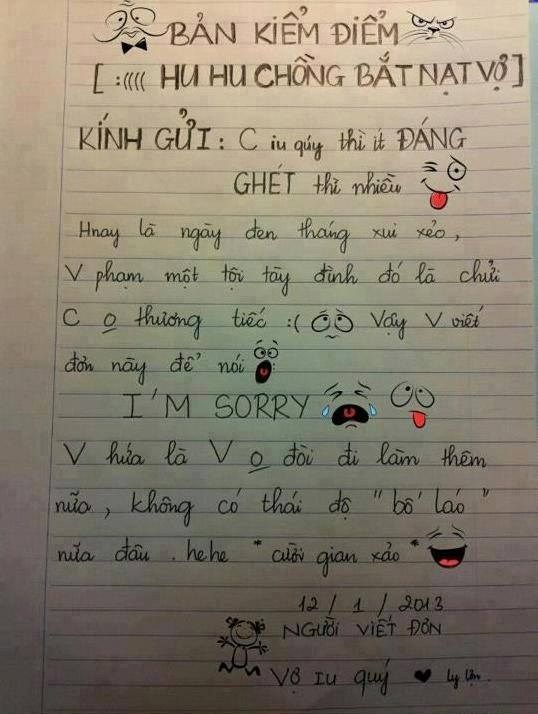 BẢN KIỂM ĐIỂM
[ :(((( HU HU CHỒNG BẮT NẠT VỢ ]
KÍNH GỬI : C iu qúy thì ít ĐÁNG
GHÉT thì nhiều
Hnay là ngày đen tháng xui xẻo,
V phạm một tội tày đình đó là chửi
C o thương tiếc :( Vậy V viết
đơn này để nói :
I'M SORRY
V hứa là V o đòi đi làm thêm
nữa, không có thái độ "bố láo"
nữa đâu. hehe * cười gian xảo *
12 / 1 / 2013
NGƯỜI VIẾT ĐƠN
Vợ IU quý ♥ ly lợn